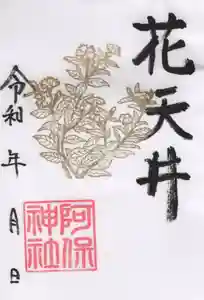 花天井
令和 年 月 日
阿保神社